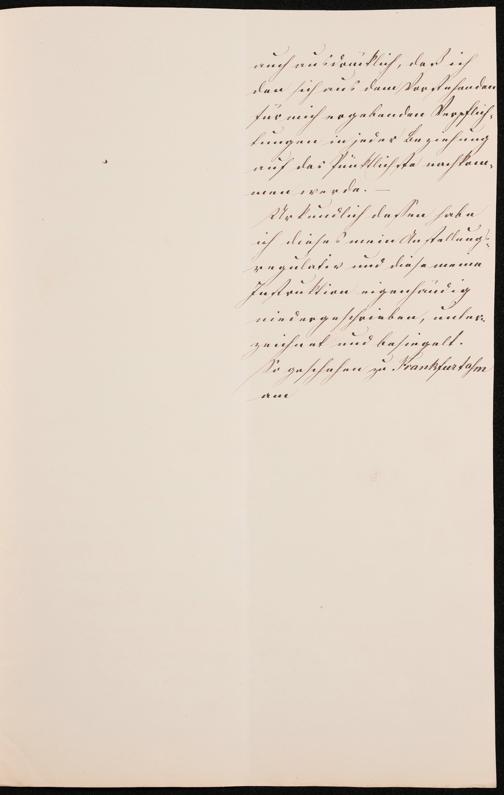 auch ausdrücklich, daß ich
den sich aus dem Vorstehenden
für mich ergebenden Verpflich-
tungen in jeder Beziehung
auf das Pünktlichste nachkom-
men werde. —
Urkundlich dessen habe
ich dieses mein Anstellungs-
regulativ und diese meine
Instruktion eigenhändig
niedergeschrieben, unter-
zeichnet und besiegelt.
So geschehen zu Frankfurt a/m
am